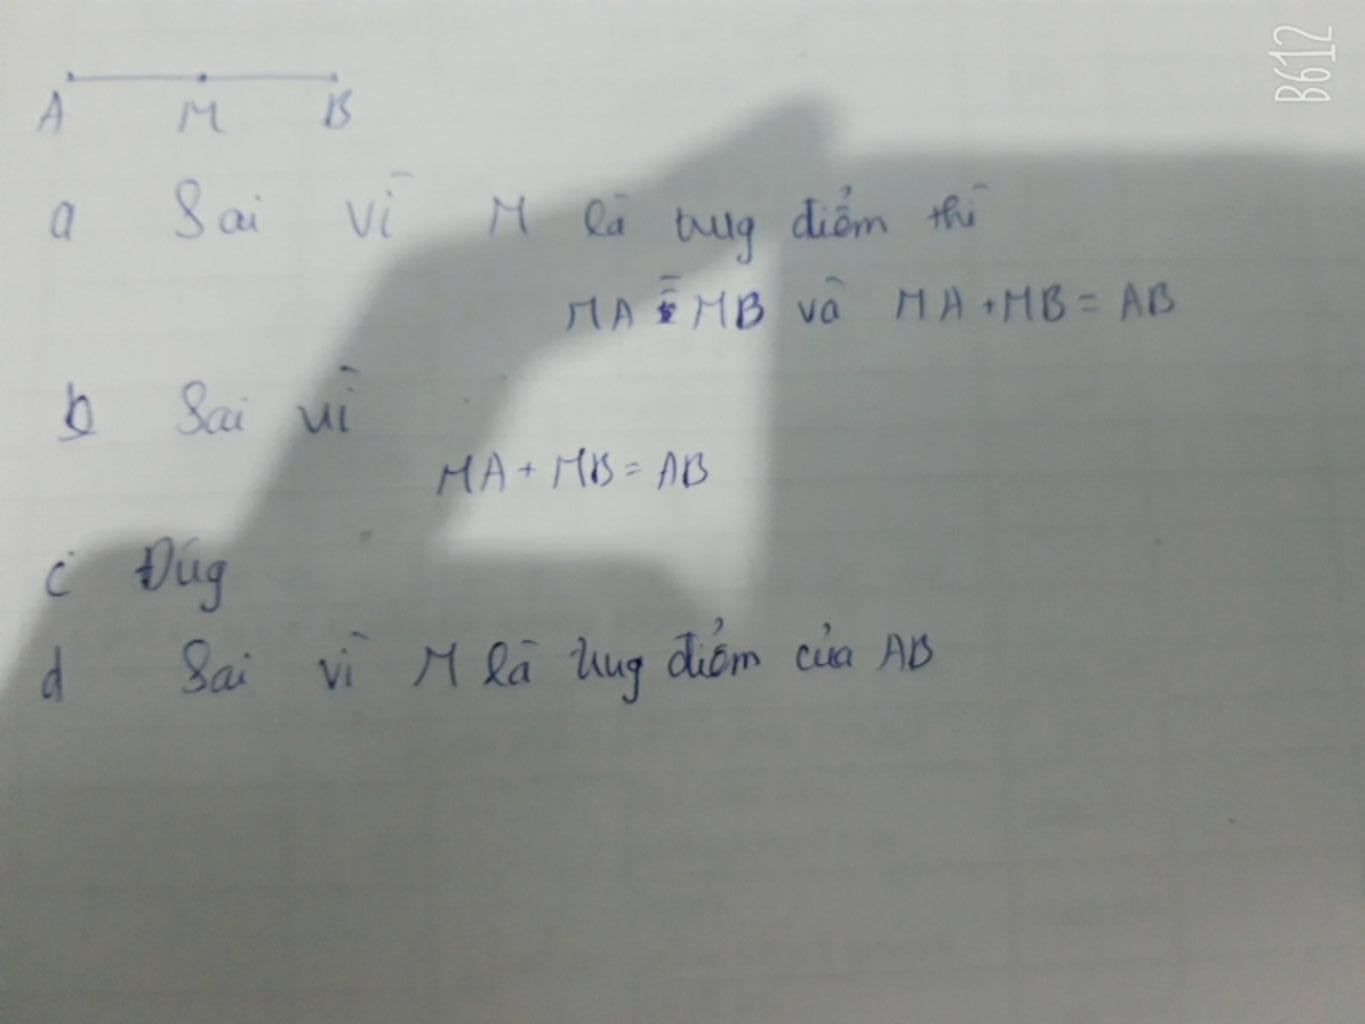 B612
A M B
a Sai vì M là trug điểm thì
MA = MB và MA + MB = AB
b Sai vì
MA + MB = AB
c Đúg
d Sai vì M là trug điểm của AB